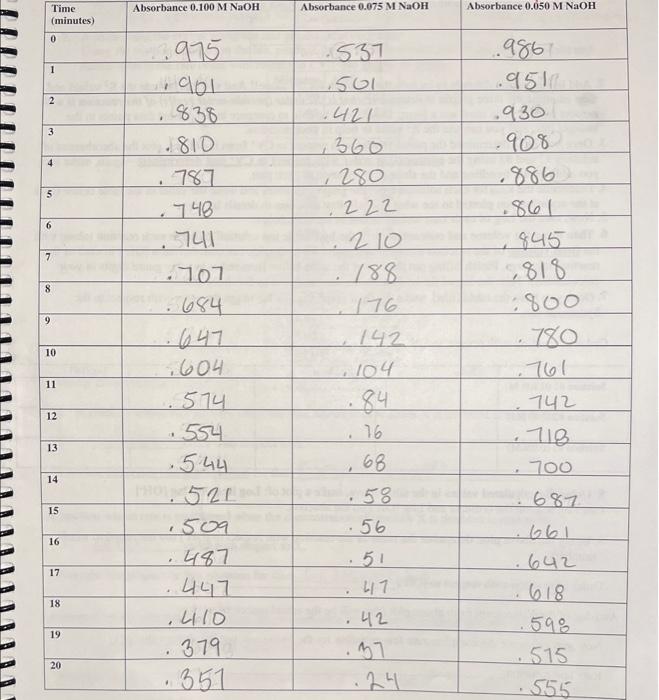 Time (minutes) Absorbance 0.100 M NaOH Absorbance 0.075 M NaOH Absorbance 0.050 M NaOH
0 .975 .537 .986
1 .901 .501 .951
2 .838 .421 .930
3 .810 .360 .908
4 .787 .280 .886
5 .748 .222 .861
6 .741 .210 .845
7 .707 .188 .818
8 .684 .176 .800
9 .647 .142 .780
10 .604 .104 .761
11 .574 .84 .742
12 .554 .76 .718
13 .544 .68 .700
14 .521 .58 .687
15 .509 .56 .661
16 .487 .51 .642
17 .447 .47 .618
18 .410 .42 .598
19 .379 .37 .575
20 .357 .24 .555